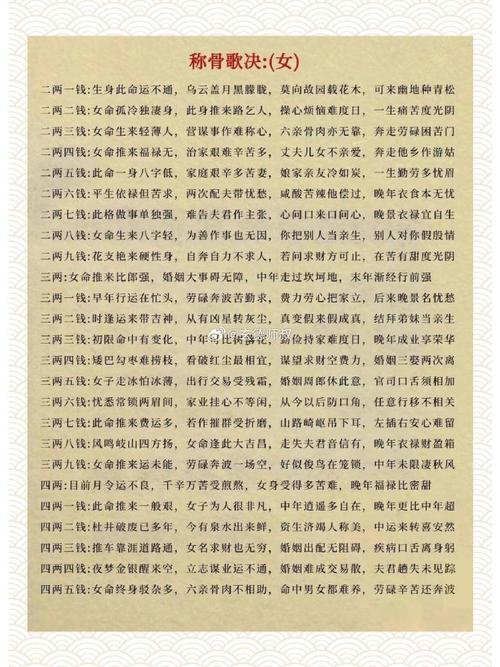 称骨歌决:(女)
二两一钱:生身此命运不通，乌云盖月黑朦胧，莫向故园载花木，可来幽地种青松
二两二钱:女命孤冷独凄身，此身推来路乞人，操心烦恼难度日，一生痛苦度光阴
二两三钱:女命生来轻薄人，营谋事作难称心，六亲骨肉亦无靠，奔走劳碌困苦门
二两四钱:女命推来福禄无，治家艰难辛苦多，丈夫儿女不亲爱，奔走他乡作游姑
二两五钱:此命一身八字低，家庭艰辛多苦妻，娘家亲友冷如炭，一生勤劳多忧眉
二两六钱:平生依禄但苦求，两次配夫带忧愁，咸酸苦辣他偿过，晚年衣食本无忧
二两七钱:此格做事单独强，难告夫君作主张，心问口来口问心，晚景衣禄宜自生
二两八钱:女命生来八字轻，为善作事也无因，你把别人当亲生，别人对你假殷情
二两九钱:花支艳来硬性身，自奔自力不求人，若问求财方可止，在苦有甜度光阴
三两:女命推来比郎强，婚姻大事碍无障，中年走过坎坷地，末年渐经行前强
三两一钱:早年行运在忙头，劳碌奔波苦勤求，费力劳心把家立，后来晚景名忧愁
三两二钱:时逢运来带吉神，从有凶星转灰尘，真变假来假成真，结拜弟妹当亲生
三两三钱:初限命中有变化，中年可比树落花，勤俭持家难度日，晚年成业享荣华
三两四钱:矮巴勾枣难捞枝，看破红尘最相宜，谋望求财空费力，婚姻三娶两次离
三两五钱:女子走冰怕冰薄，出行交易受残霜，婚姻周郎休此意，官司口舌须相加
三两六钱:忧悉常锁两眉间，家业挂心不等闲，从今以后防口角，任意行移不相关
三两七钱:此命推来费运多，若作摧群受折磨，山路崎岖吊下耳，左插右安心难留
三两八钱:凤鸣岐山四方扬，女命逢此大吉昌，走失夫君音信有，晚年衣禄财盈箱
三两九钱:女命推来运未能，劳碌奔波一场空，好似俊鸟在笼锁，中年未限凄秋风
四两:目前月令运不良，千辛万苦受煎熬，女身受得多苦难，晚年福禄比密甜
四两一钱:此命推来一般艰，女子为人很非凡，中年逍遥多自在，晚年更比中年超
四两二钱:杜井破度已多年，今有泉水出来鲜，资生济竭人称美，中运来转喜安然
四两三钱:推车靠涯道路通，女名求财也无穷，婚姻出配无阻碍，疾病口舌离身躬
四两四钱:夜梦金银醒来空，立志谋业运不通，婚姻难成交易散，夫君趟失未见踪
四两五钱:女命终身驳杂多，六亲骨肉不相助，命中男女都难养，劳碌辛苦还奔波